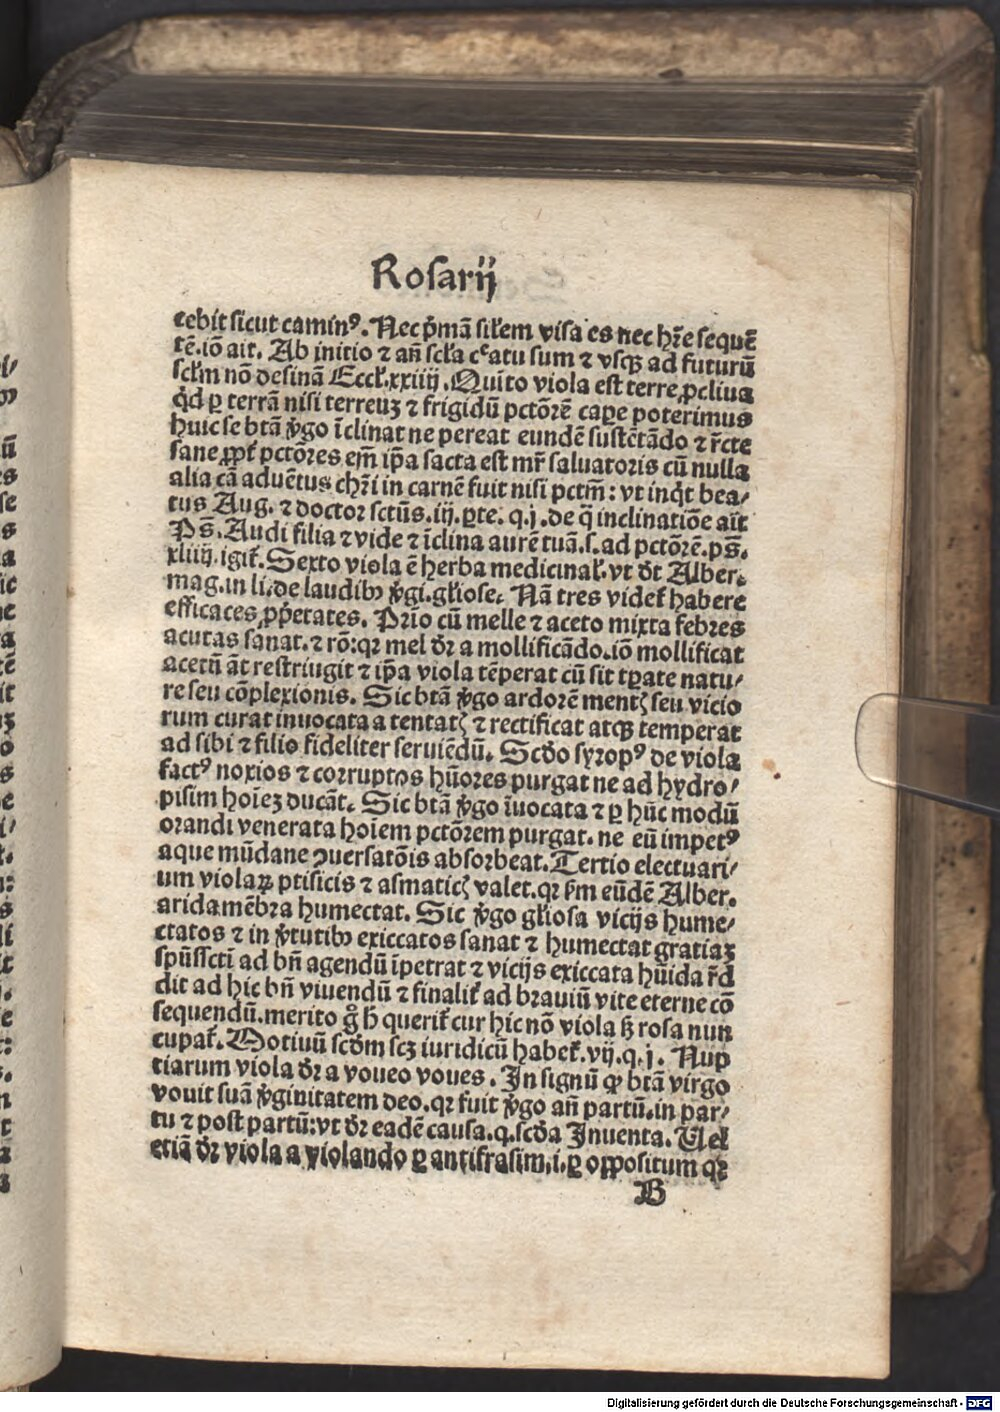 Rosarij
cebit sicut caminꝰ. Nec p̄mā sil'em visa es nec hr̄e sequē
tē. iō ait. Ab initio ⁊ an̄ scl'a creatu sum ⁊ vsqꝫ ad futurū
scl'm nō desinā Eccl'. xxiiij. Quīto viola est terre ꝓcliua
q̇d ꝑ terrā nisi terreuꝫ ⁊ frigidū pctōrē caꝑe poterimus
huic se btā ꝟgo īclinat ne pereat eundē sustētādo ⁊ r̄cte
sane ꝓpt' pctōres em̄ ip̄a facta est mr̄ saluatoris cū nulla
alia cā aduētus chr̄i in carnē fuit nisi pctm̄: vt inq̇t bea⸗
tus Aug. ⁊ doctor sctūs. iij. ꝑte. q. j. de q̄ inclinatiōe ait
Ps̄. Audi filia ⁊ vide ⁊ īclina aurē tuā. s. ad pctōrē. ps̄.
xliiij. igit'. Sexto viola ē herba medicinal'. vt dt̄ Alber.
mag. in li. de laudibꝰ ꝟgi. gl'iose. Nā tres videt' habere
efficaces ꝓp̄etates. Prīo cū melle ⁊ aceto mixta febres
acutas sanat. ⁊ rō: qꝛ mel dr̄ a mollificādo. iō mollificat
acetū āt restringit ⁊ ip̄a viola tēperat cū sit tꝑate natu⸗
re seu cōplexionis. Sic btā ꝟgo ardorē mentꝭ seu vicio
rum curat inuocata a tentatꝭ ⁊ rectificat atqꝫ temperat
ad sibi ⁊ filio fideliter seruiēdū. Scd̄o syropꝰ de viola
factꝰ noxios ⁊ corruptos hūores purgat ne ad hydro⸗
pisim hoīeꝫ ducāt. Sic btā ꝟgo īuocata ⁊ ꝑ hūc modū
orandi venerata hoīem pctōrem purgat. ne eū impetꝰ
aque mūdane ꝯuersatōis absorbeat. Tertio electuari⸗
um violaꝝ ptisicis ⁊ asmaticꝭ valet. qꝛ sm̄ eūdē Alber.
arida mēbra humectat. Sic ꝟgo gl'iosa vicijs hume⸗
ctatos ⁊ in ꝟtutibꝰ exiccatos sanat ⁊ humectat gratiaꝫ
spūssctī ad bn̄ agendū īpetrat ⁊ vicijs exiccata hūida r̄d
dit ad hic bn̄ viuendū ⁊ finalit' ad brauiū vite eterne cō
sequendū. merito g̊ h̄ querit' cur hic nō viola sꝫ rosa nun
cupat'. Motiuū scd̄m scꝫ iuridicū habet'. vij. q. j. Nup
tiarum viola dr̄ a voueo voues. In signū ꝙ btā virgo
vouit suā ꝟginitatem deo. qꝛ fuit ꝟgo an̄ partū. in par⸗
tu ⁊ post partū: vt dr̄ eadē causa. q. scd̄a Inuenta. Uel
etiā dr̄ viola a violando ꝑ antifrasim. i. ꝑ oppositum qꝛ
B
Digitalisierung gefördert durch die Deutsche Forschungsgemeinschaft - DFG